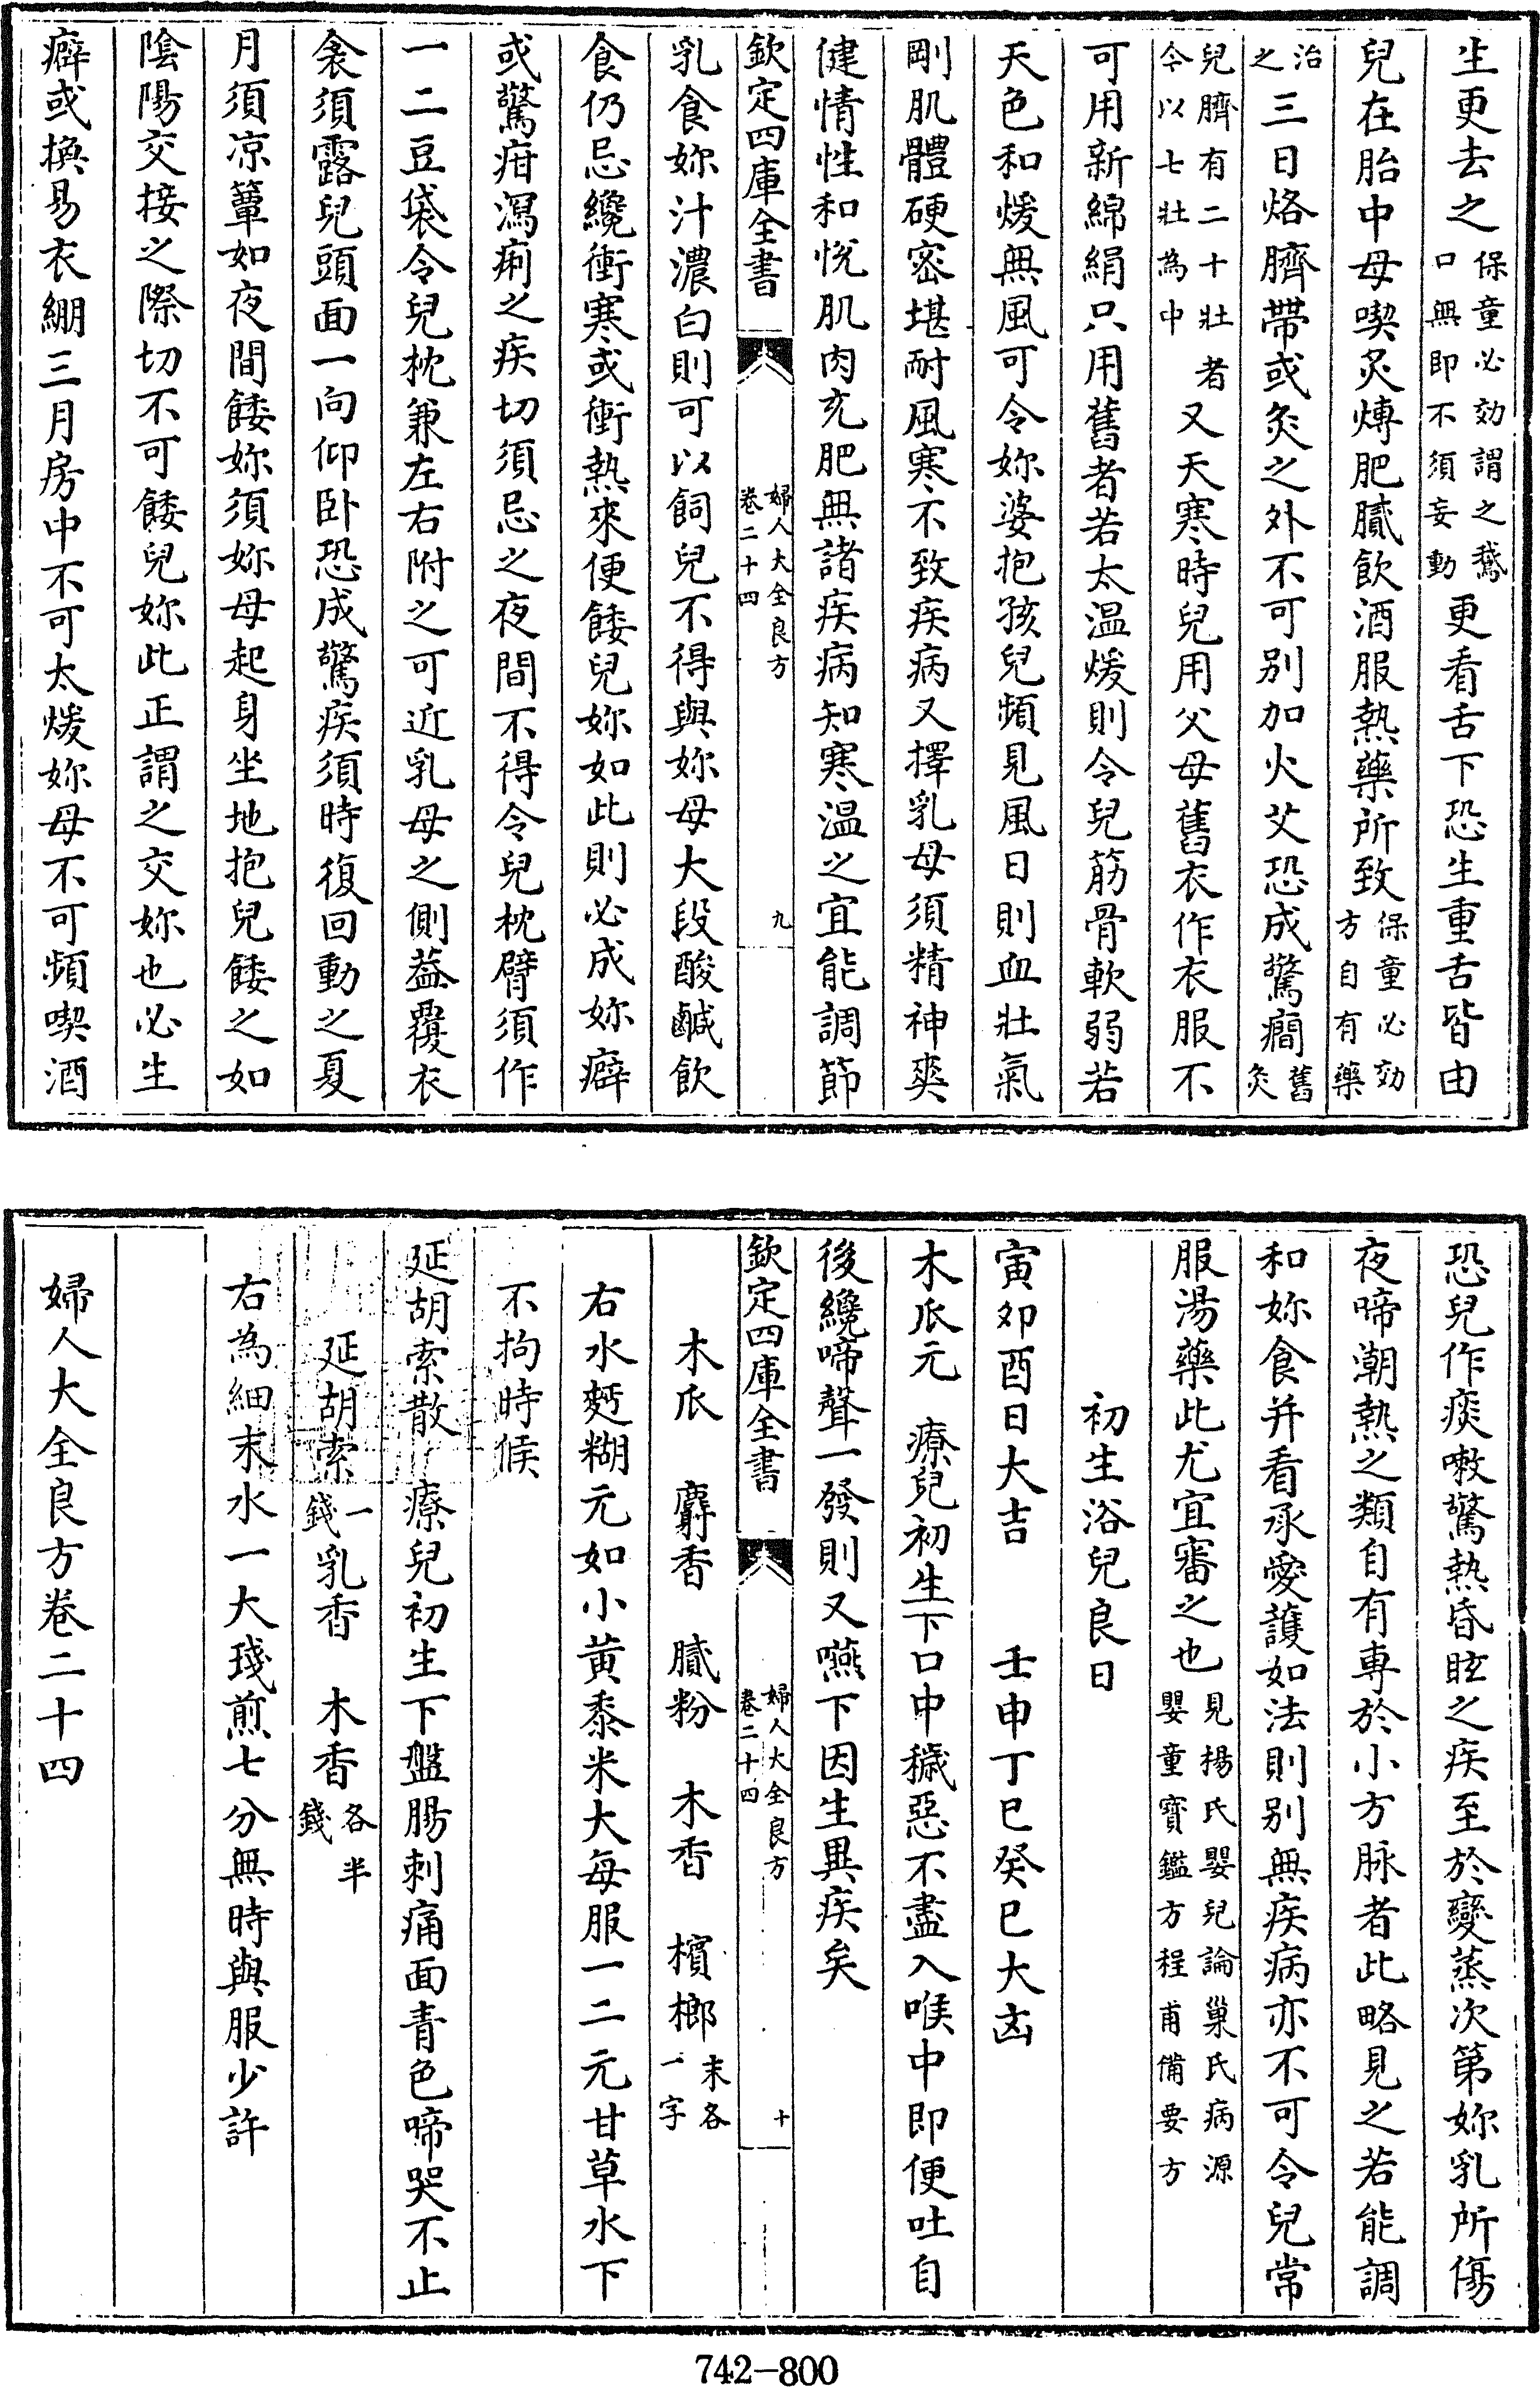 生更去之保童必効謂之鵝口無即不須妄動更看舌下恐生重舌皆由
兒在胎中母喫炙煿肥膩飲酒服熱藥所致保童必効方自有藥
治之三日烙臍帶或灸之外不可别加火艾恐成驚癎舊灸
兒臍有二十壯者今以七壯為中又天寒時兒用父母舊衣作衣服不
可用新綿絹只用舊者若太温煖則令兒筋骨軟弱若
天色和煖無風可令妳婆抱孩兒頻見風日則血壯氣
剛肌體硬密堪耐風寒不致疾病又擇乳母須精神爽
健情性和悅肌肉充肥無諸疾病知寒温之宜能調節
欽定四庫全書 婦人大全良方卷二十四 九
乳食妳汁濃白則可以飼兒不得與妳母大段酸鹹飲
食仍忌纔衝寒或衝熱來便餧兒妳如此則必成妳癖
或驚疳瀉痢之疾切須忌之夜間不得令兒枕臂須作
一二豆袋令兒枕兼左右附之可近乳母之側葢覆衣
衾須露兒頭面一向仰卧恐成驚疾須時復回動之夏
月須凉簟如夜間餧妳須妳母起身坐地抱兒餧之如
陰陽交接之際切不可餧兒妳此正謂之交妳也必生
癖或換易衣綳三月房中不可太煖妳母不可頻喫酒
恐兒作痰嗽驚熱昏眩之疾至於變蒸次第妳乳所傷
夜啼潮熱之類自有専於小方脉者此略見之若能調
和妳食并看承愛護如法則别無疾病亦不可令兒常
服湯藥此尤宜審之也見楊氏嬰兒論巢氏病源嬰童寳鑑方程甫備要方
初生浴兒良日
寅卯酉日大吉 壬申丁巳癸巳大凶
木瓜元 療兒初生下口中穢惡不盡入喉中即便吐自
後纔啼聲一發則又嚥下因生異疾矣
欽定四庫全書 婦人大全良方卷二十四 十
木瓜 麝香 膩粉 木香 檳榔末各一字
右水麪糊元如小黄黍米大每服一二元甘草水下
不拘時候
延胡索散 療兒初生下盤腸刺痛面青色啼哭不止
延胡索一錢乳香 木香各半錢
右為細末水一大琖煎七分無時與服少許
婦人大全良方卷二十四
742-800